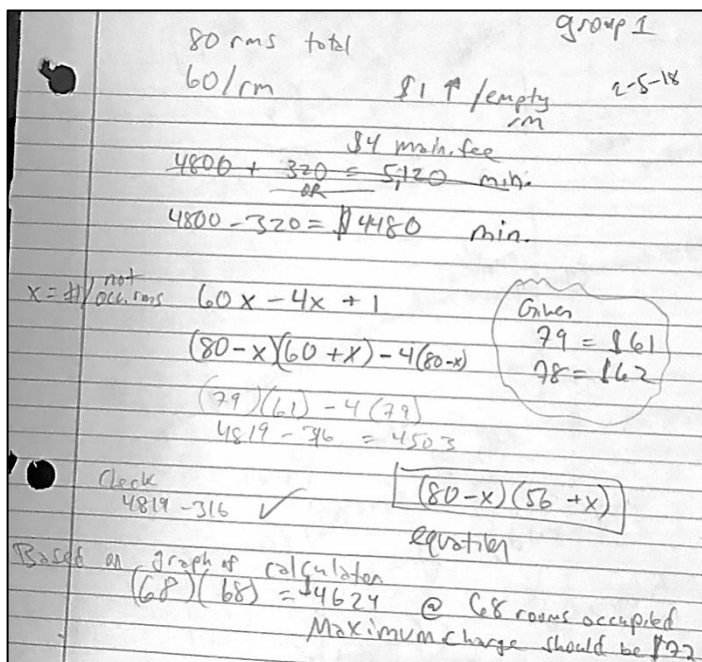 group 1
80 rms total
60/rm
$1 ↑ /empty rm
2-5-18
$4 main. fee
4800 + 320 = 5,120 min.
OR
4800 - 320 = $4480 min.
x = #/not occ. rms
60x - 4x + 1
Given
79 = $61
78 = $62
(80-x)(60+x) - 4(80-x)
(79)(61) - 4(79)
4819 - 316 = 4503
Check
4819 - 316 ✓
(80-x)(56+x)
equation
Based on graph of calculator
(68)(68) = $4624 @ 68 rooms occupied
Maximum charge should be $72